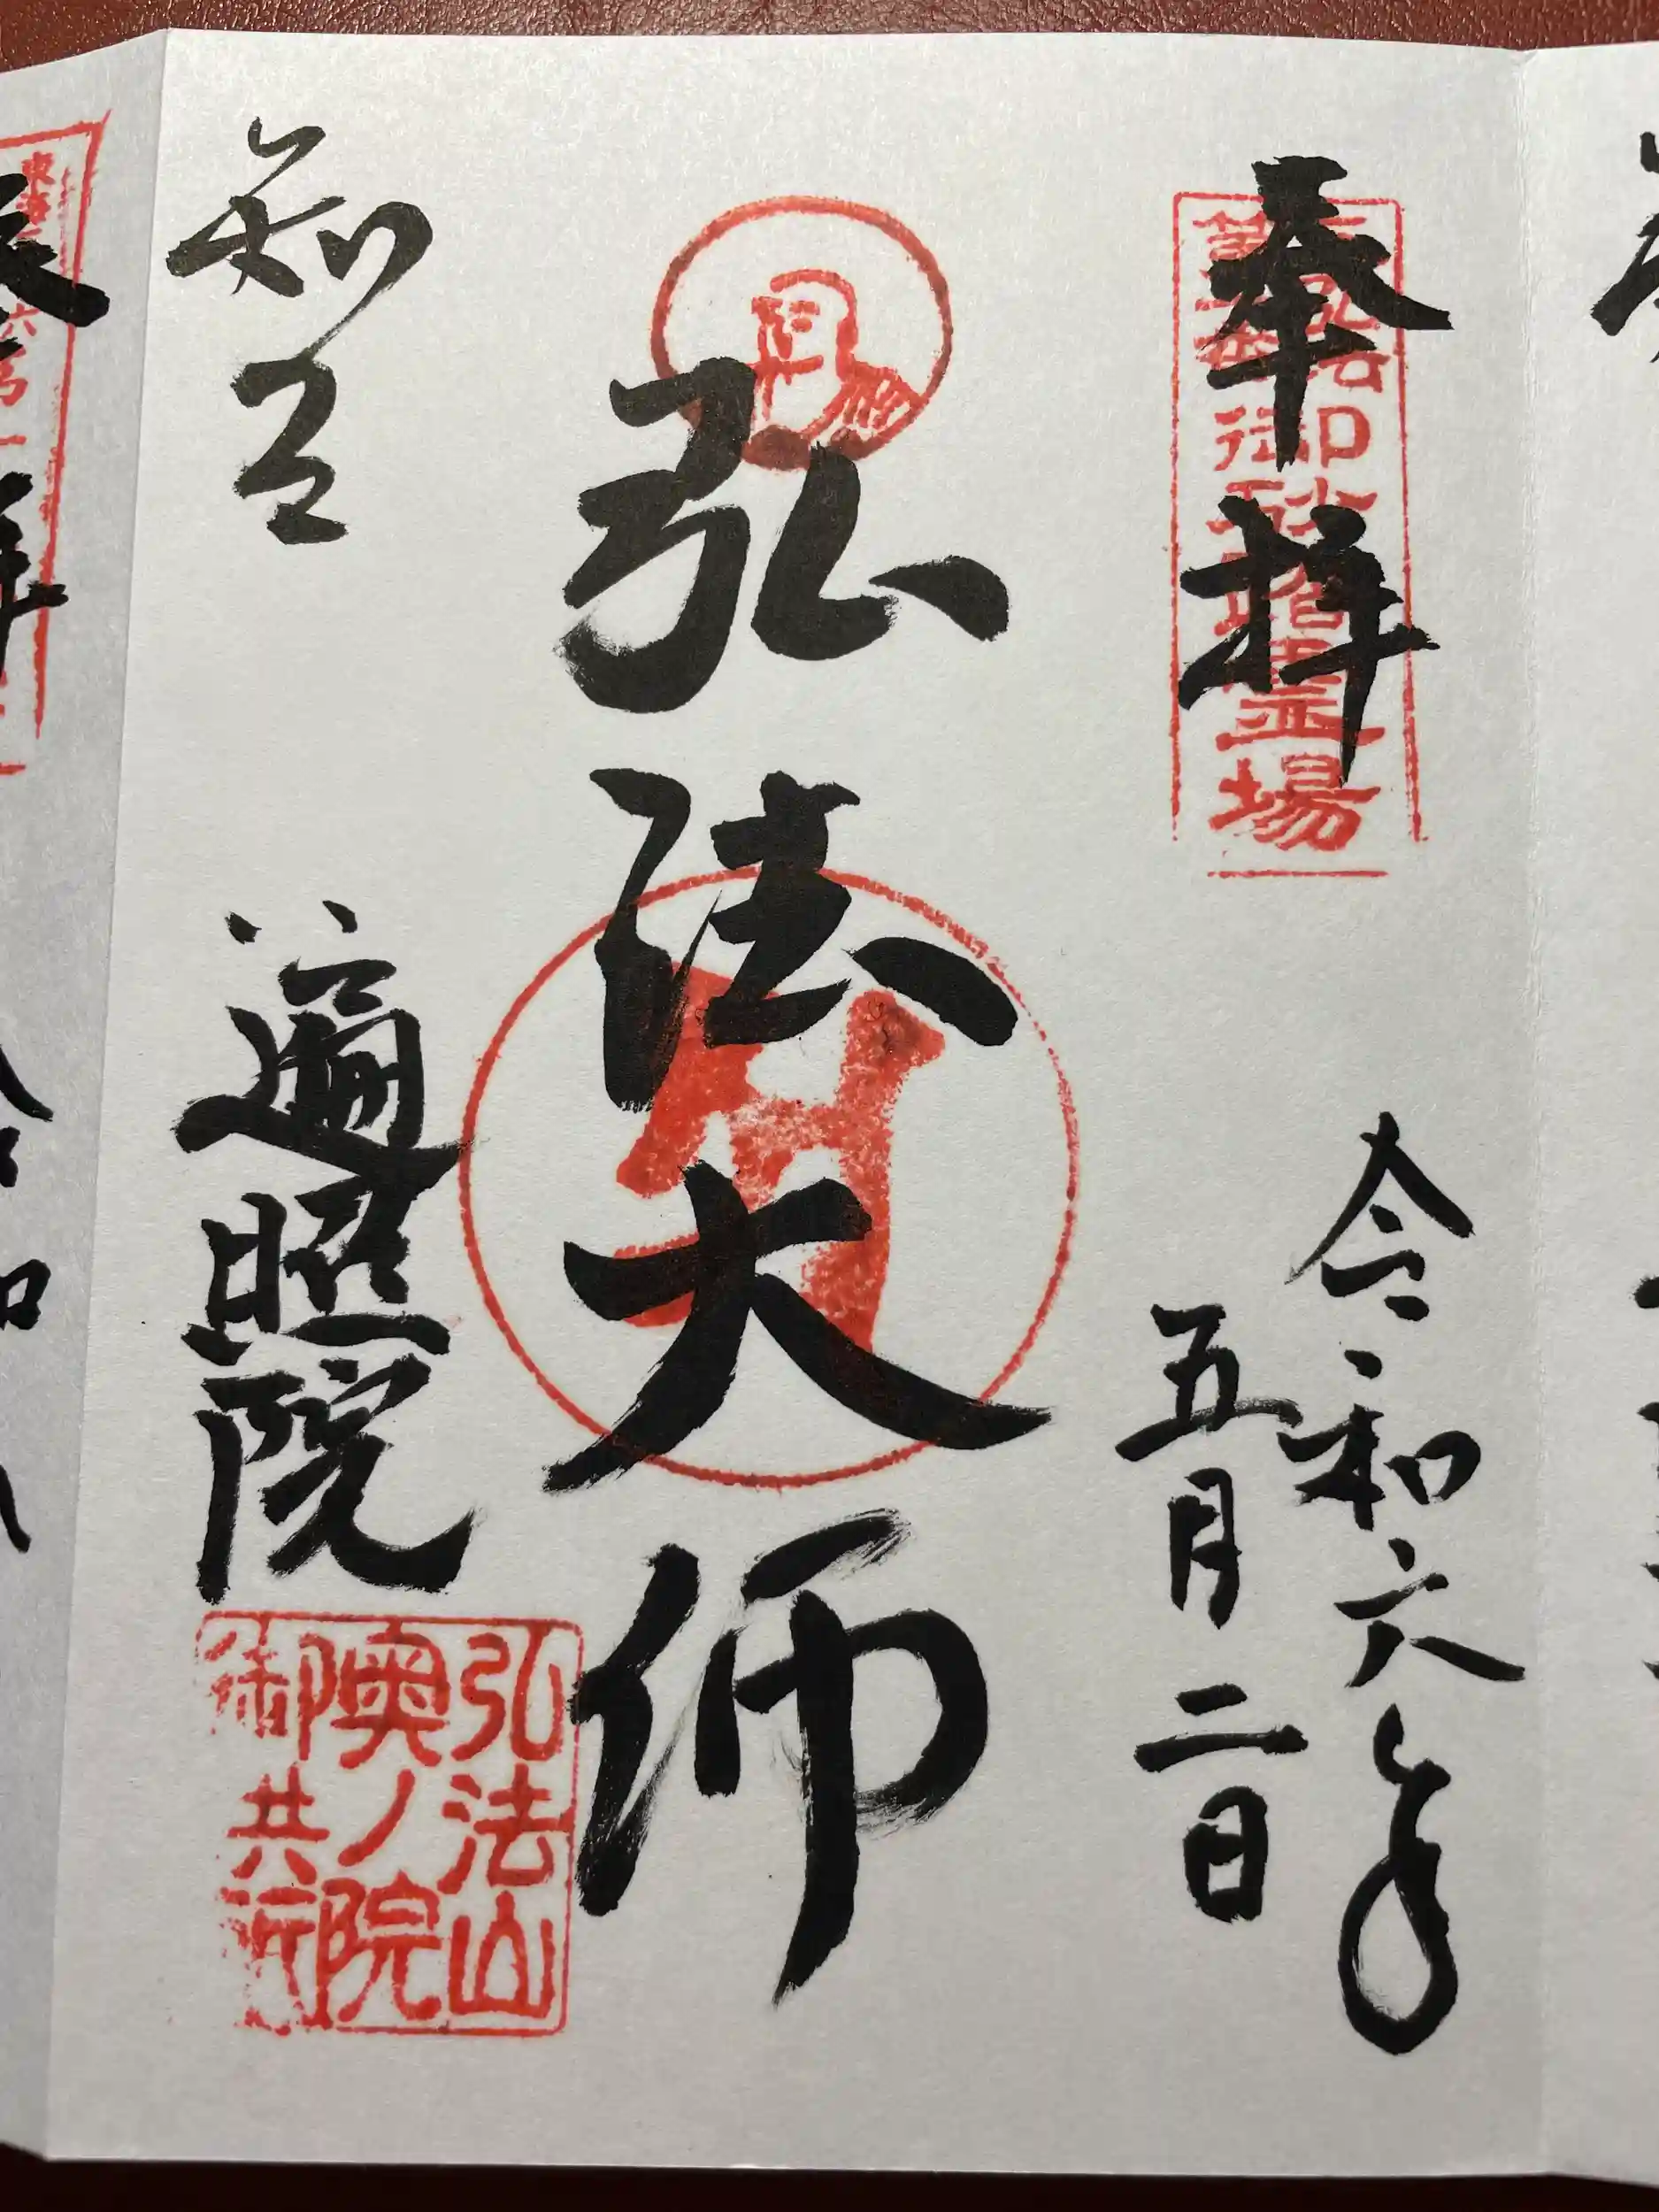 奉拝
令和六年
五月二日
御砂踏霊場
弘法大師
知立
遍照院
弘法山
奥ノ院
御